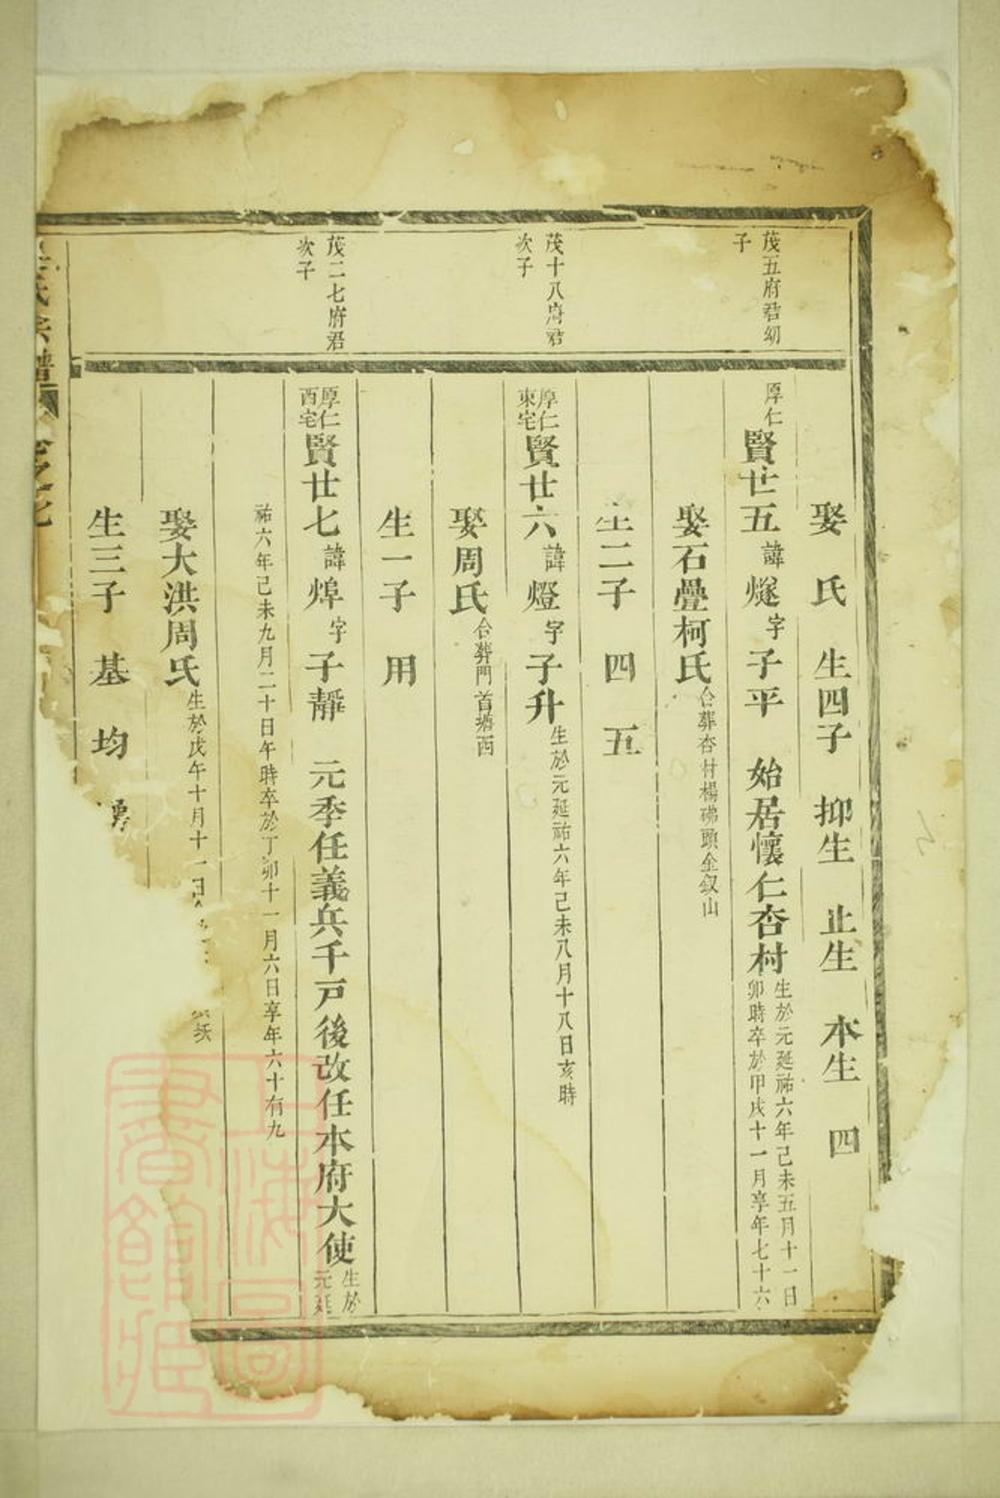 茂五府君幼
子
娶　氏　生四子　抑生　止生　本生　四
厚仁
賢廿五 諱 燧 字 子平　始居懷仁杏村
生於元延祐六年己未五月十一日
卯時卒於甲戌十一月享年七十六
娶石疊柯氏
合葬杏村楊 頭金釵山
生二子　四　五
茂十八府君
次子
厚仁
東宅
賢廿六 諱 燈 字 子升
生於元延祐六年己未八月十八日亥時
娶周氏
合葬門首塘西
生一子　用
茂二七府君
次子
厚仁
西宅
賢廿七 諱 焞 字 子靜　元季任義兵千戸後改任本府大使
生於
元延
祐六年己未九月二十日午時卒於丁卯十一月六日享年六十有九
娶大洪周氏
生於戊午十月十一日
生三子　基　均
氏宗譜
上海圖書館藏